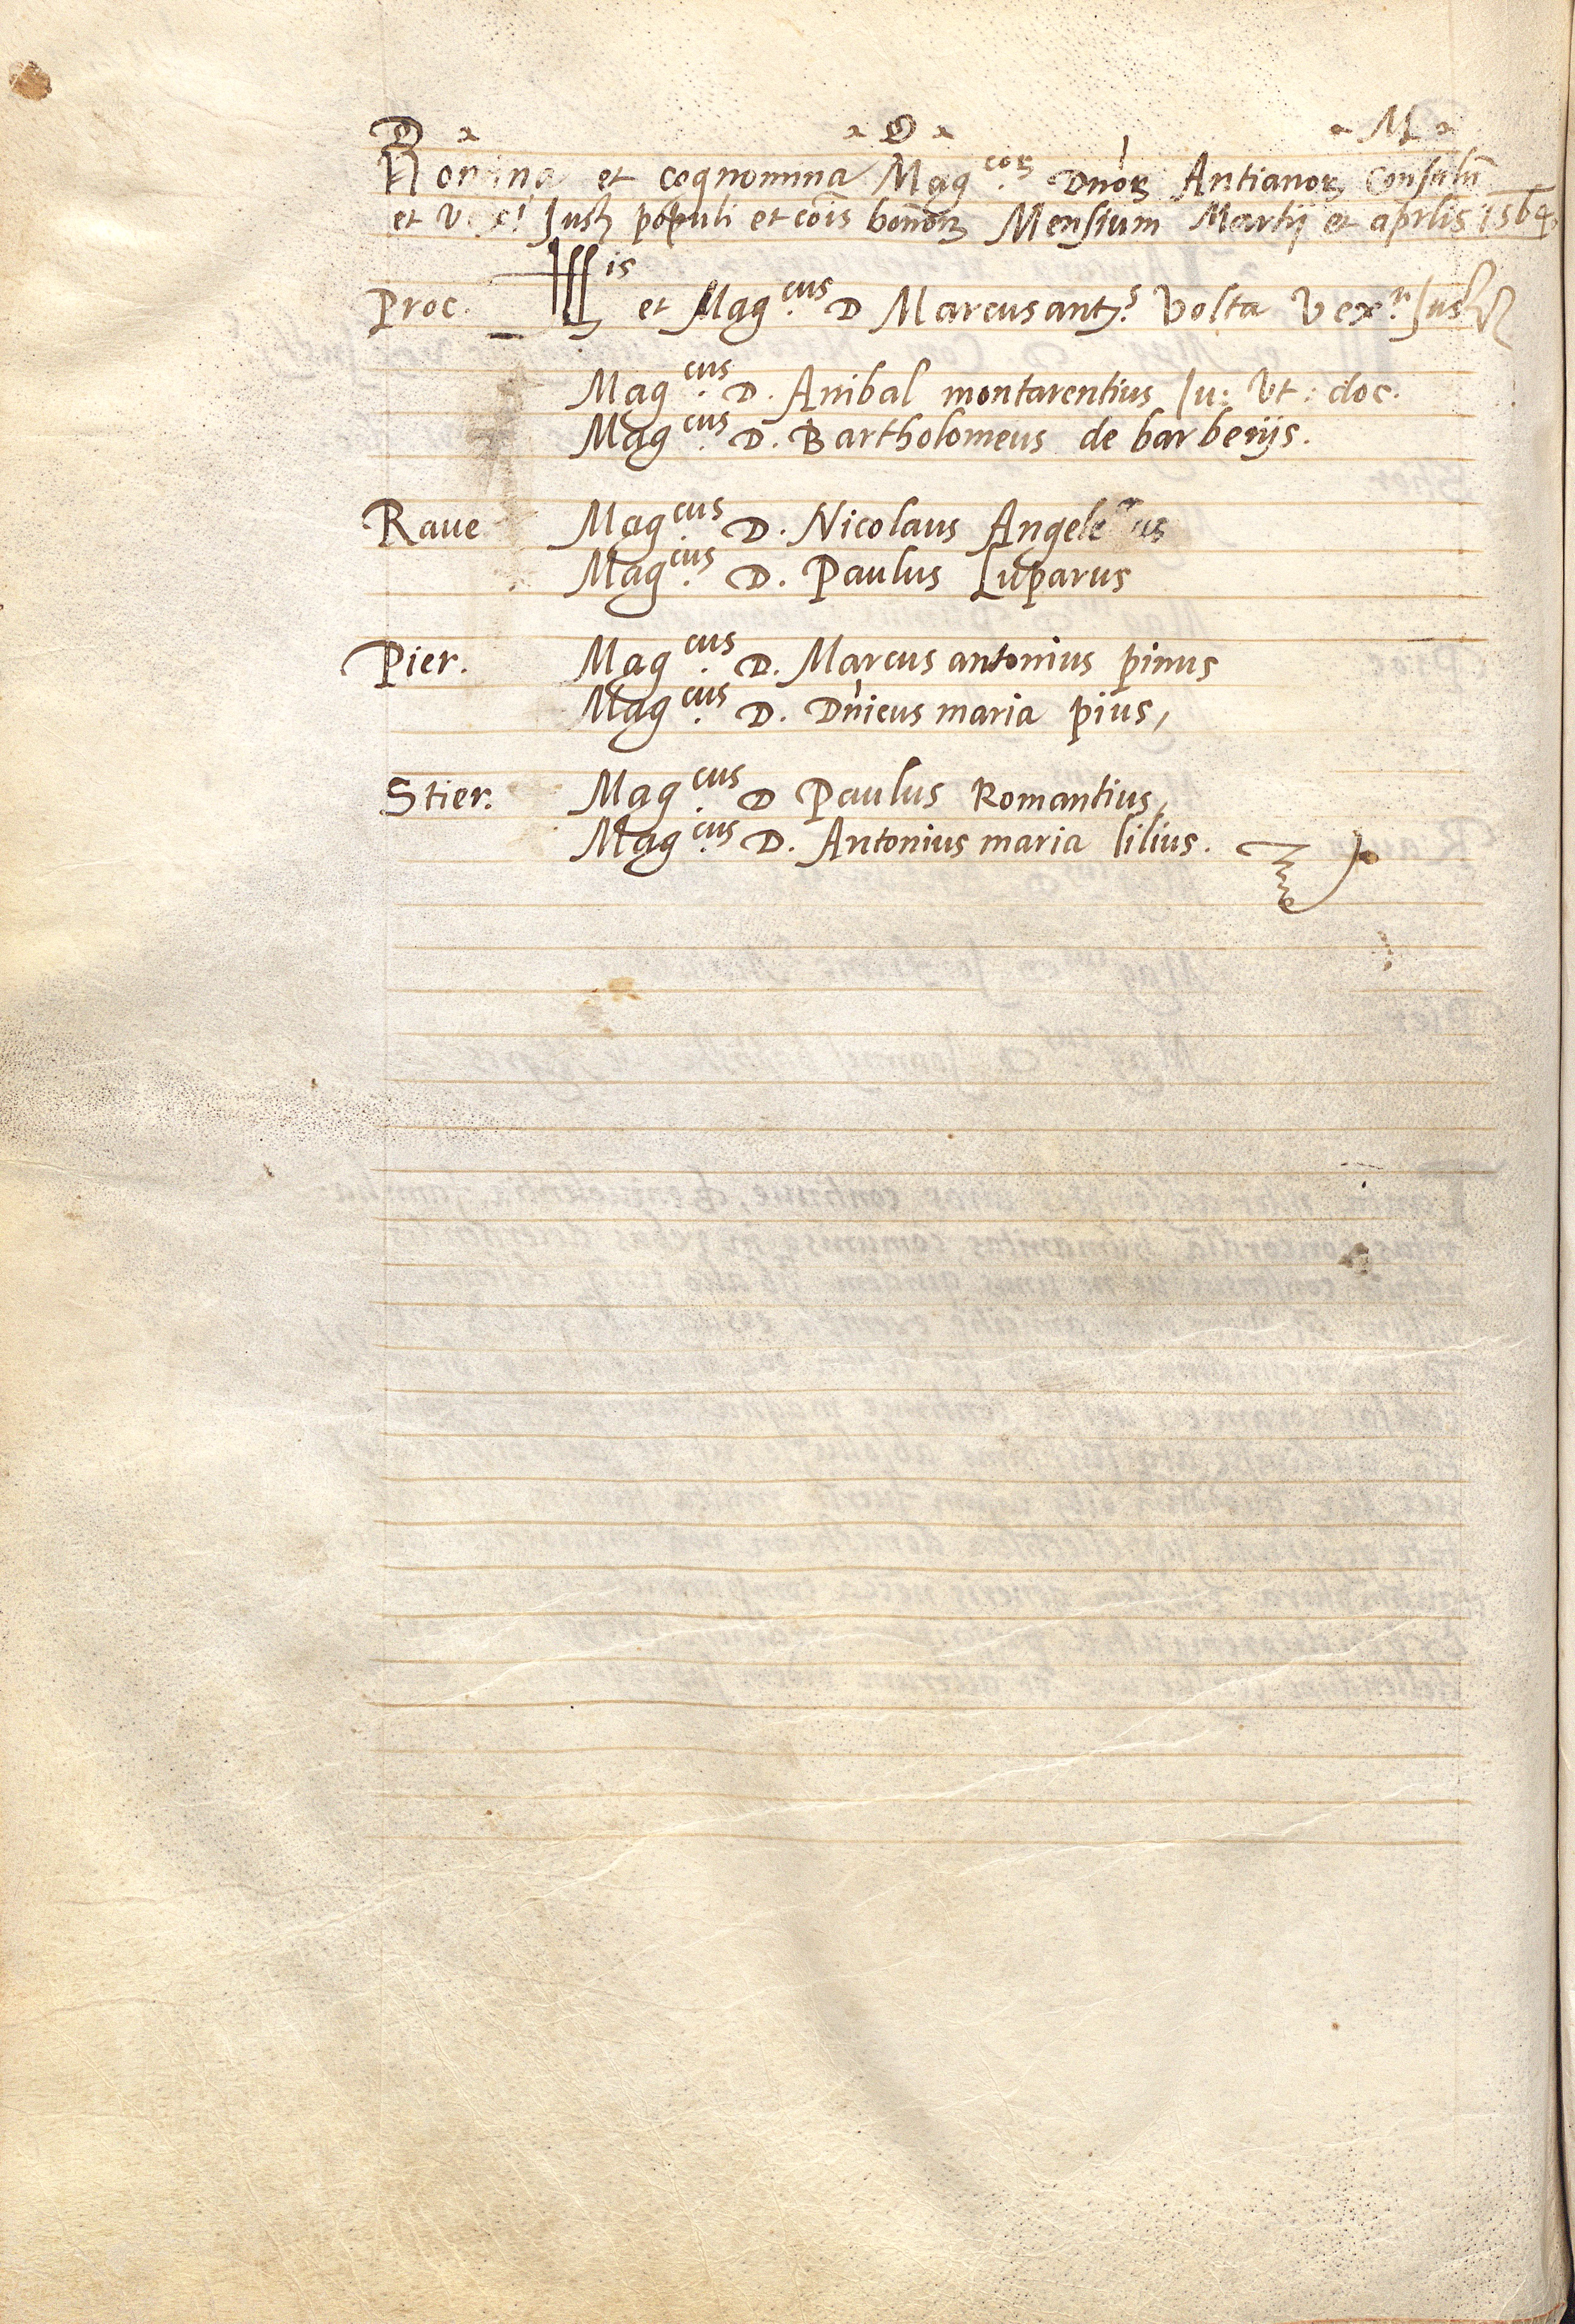 D. O. M.
Nomina et cognomina Mag.corꝝ Dn̄orꝝ Antianorꝝ Consulū
et Vexi Justꝫ populi et cōis bonōrꝝ Mensium Martij et aprlis 1564,
Proc. Illis et Mag.cus D Marcusantꝰ Volta Vex.r Justꝫ
Mag.cus D. Anibal montarentius Iu: Vt: doc.
Mag.cus D. Bartholomeus de barberijs.
Raue Mag.cus D. Nicolaus
Mag.cus D. Paulus Luparus
Pier. Mag.cus D. Marcus antonius pinus
Mag.cus D. Dn̄icus maria pius,
Stier. Mag.cus D Paulus Romantius,
Mag.cus D. Antonius maria lilius.